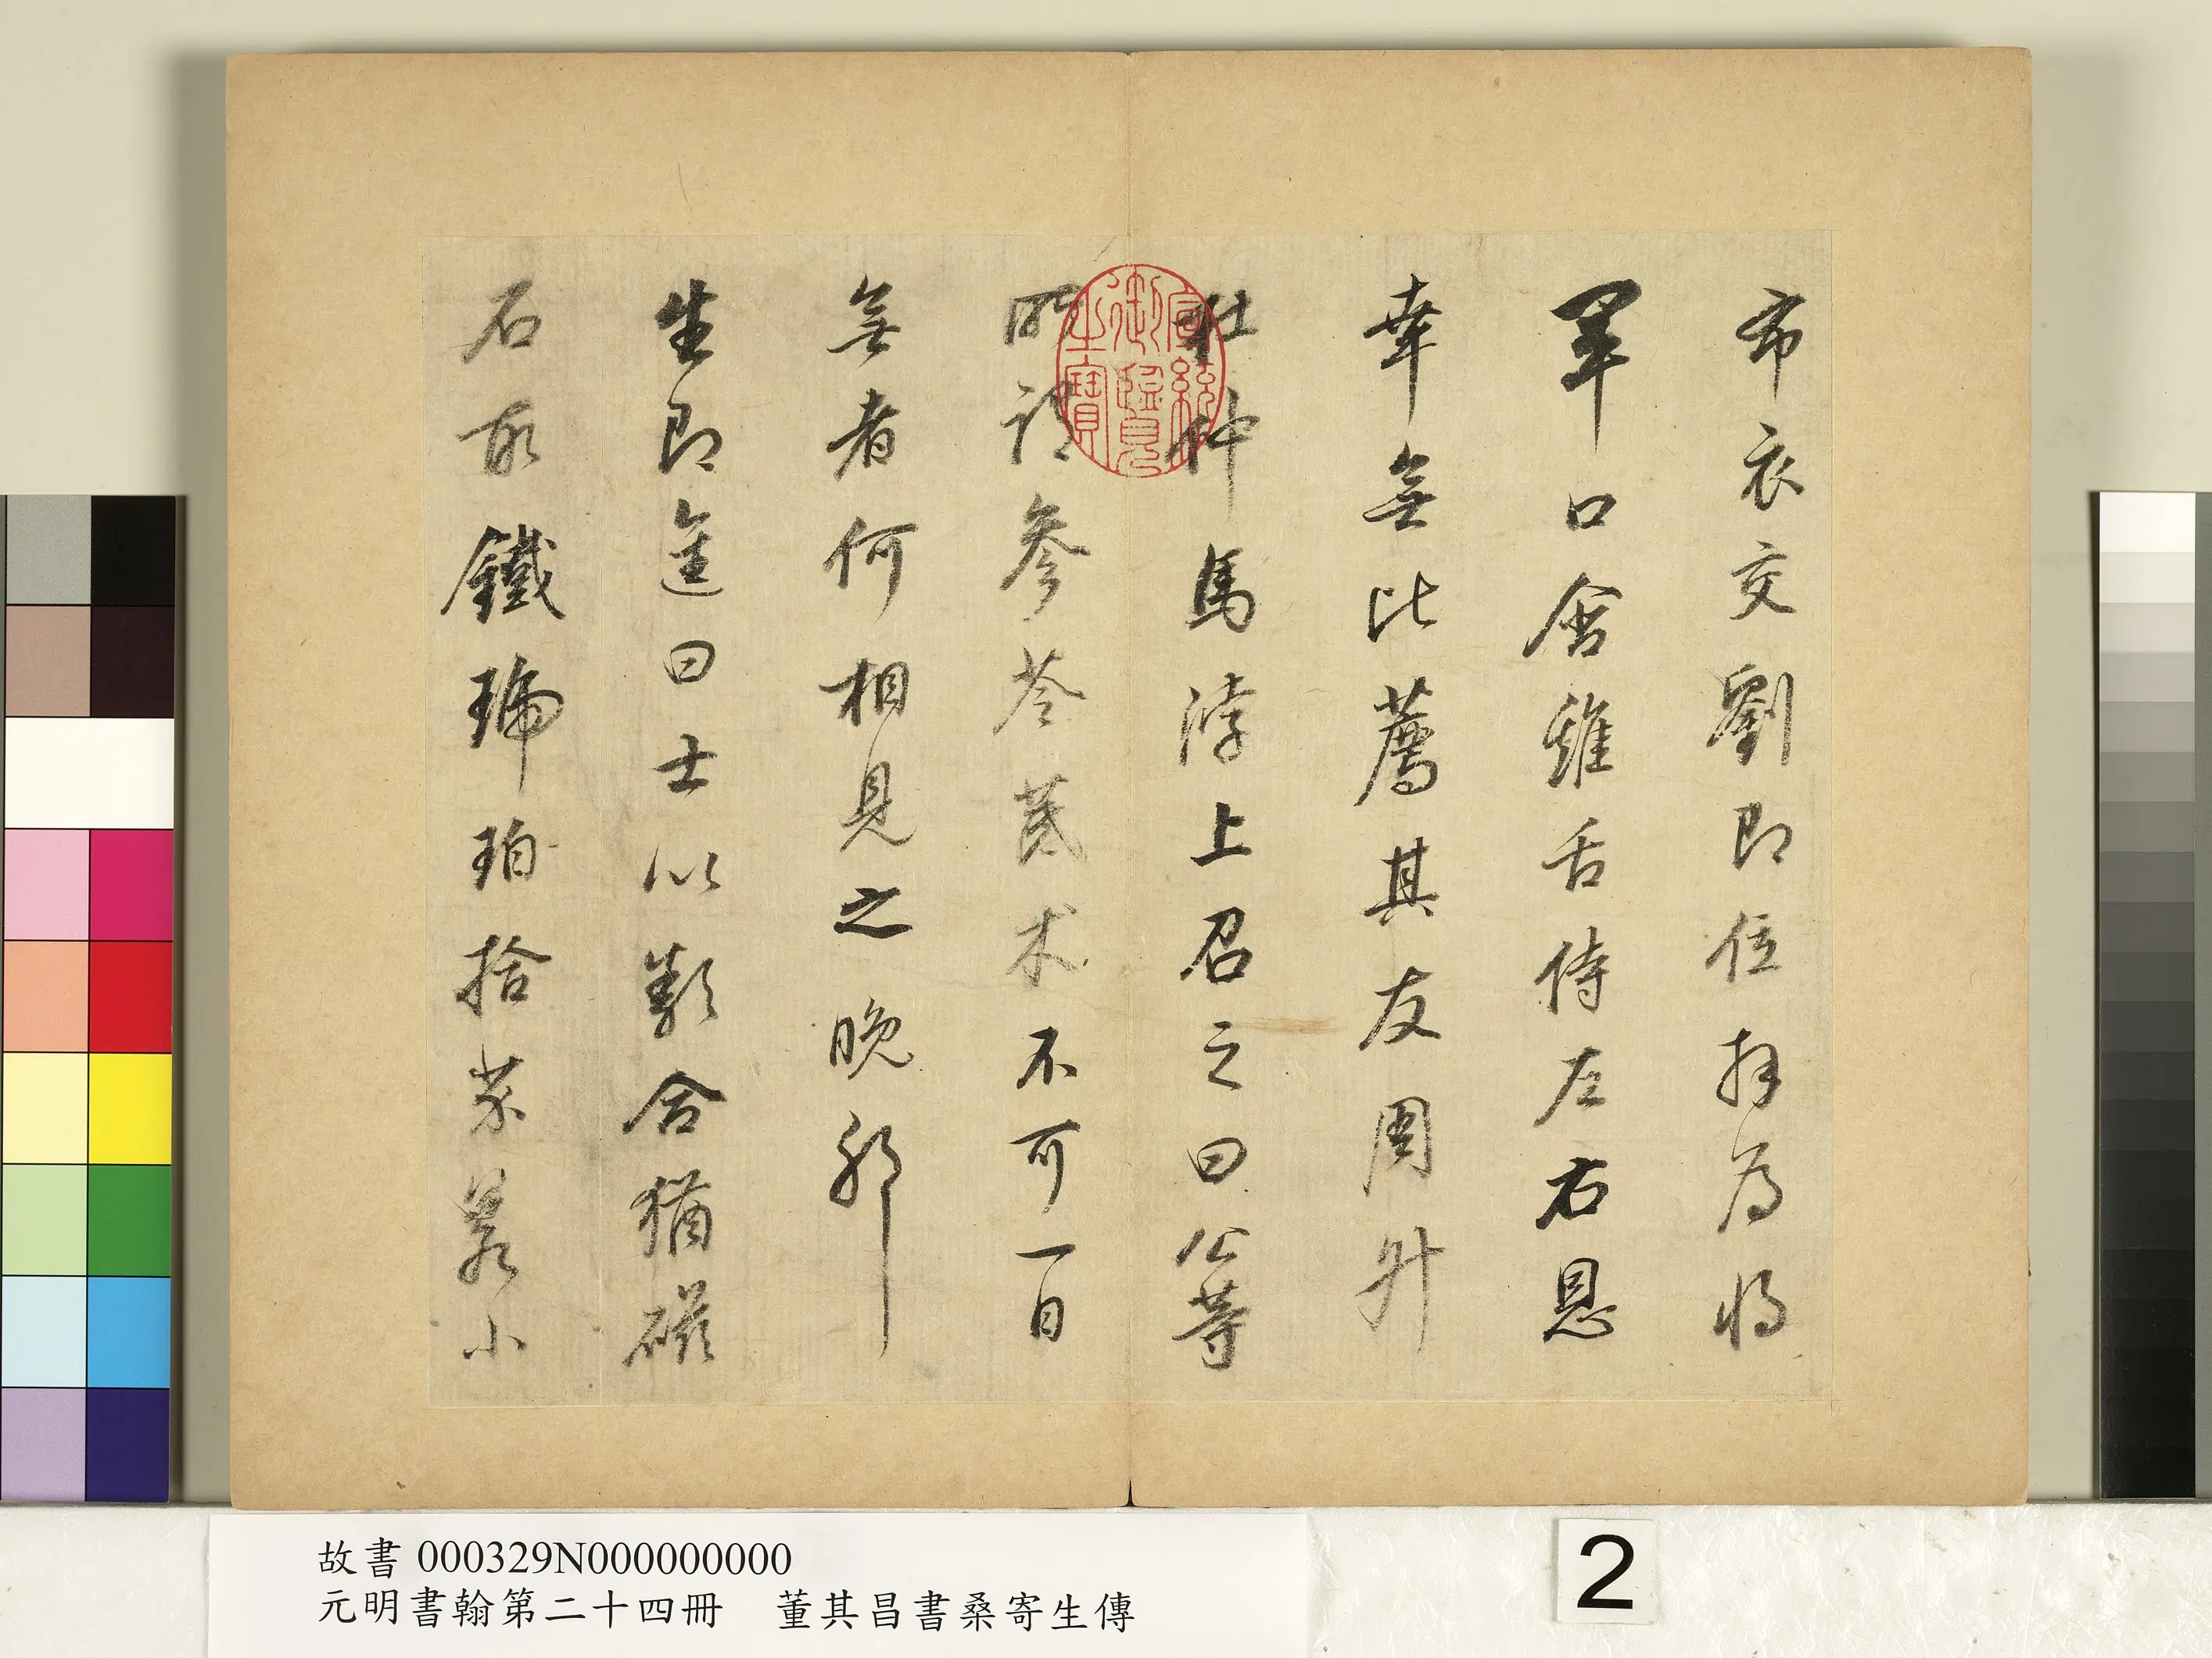 布衣交劉即位拜為將
軍口含雞舌侍左右恩
幸無比薦其友周升
杜仲馬浡上召之曰公等
所謂參苓芪术不可一日
無者何相見之晚耶
生即進曰士以類合猶磁
石取鐵琥珀拾芥小
宣統御覽之寶
故書 000329N000000000
元明書翰第二十四冊 董其昌書桑寄生傳
2